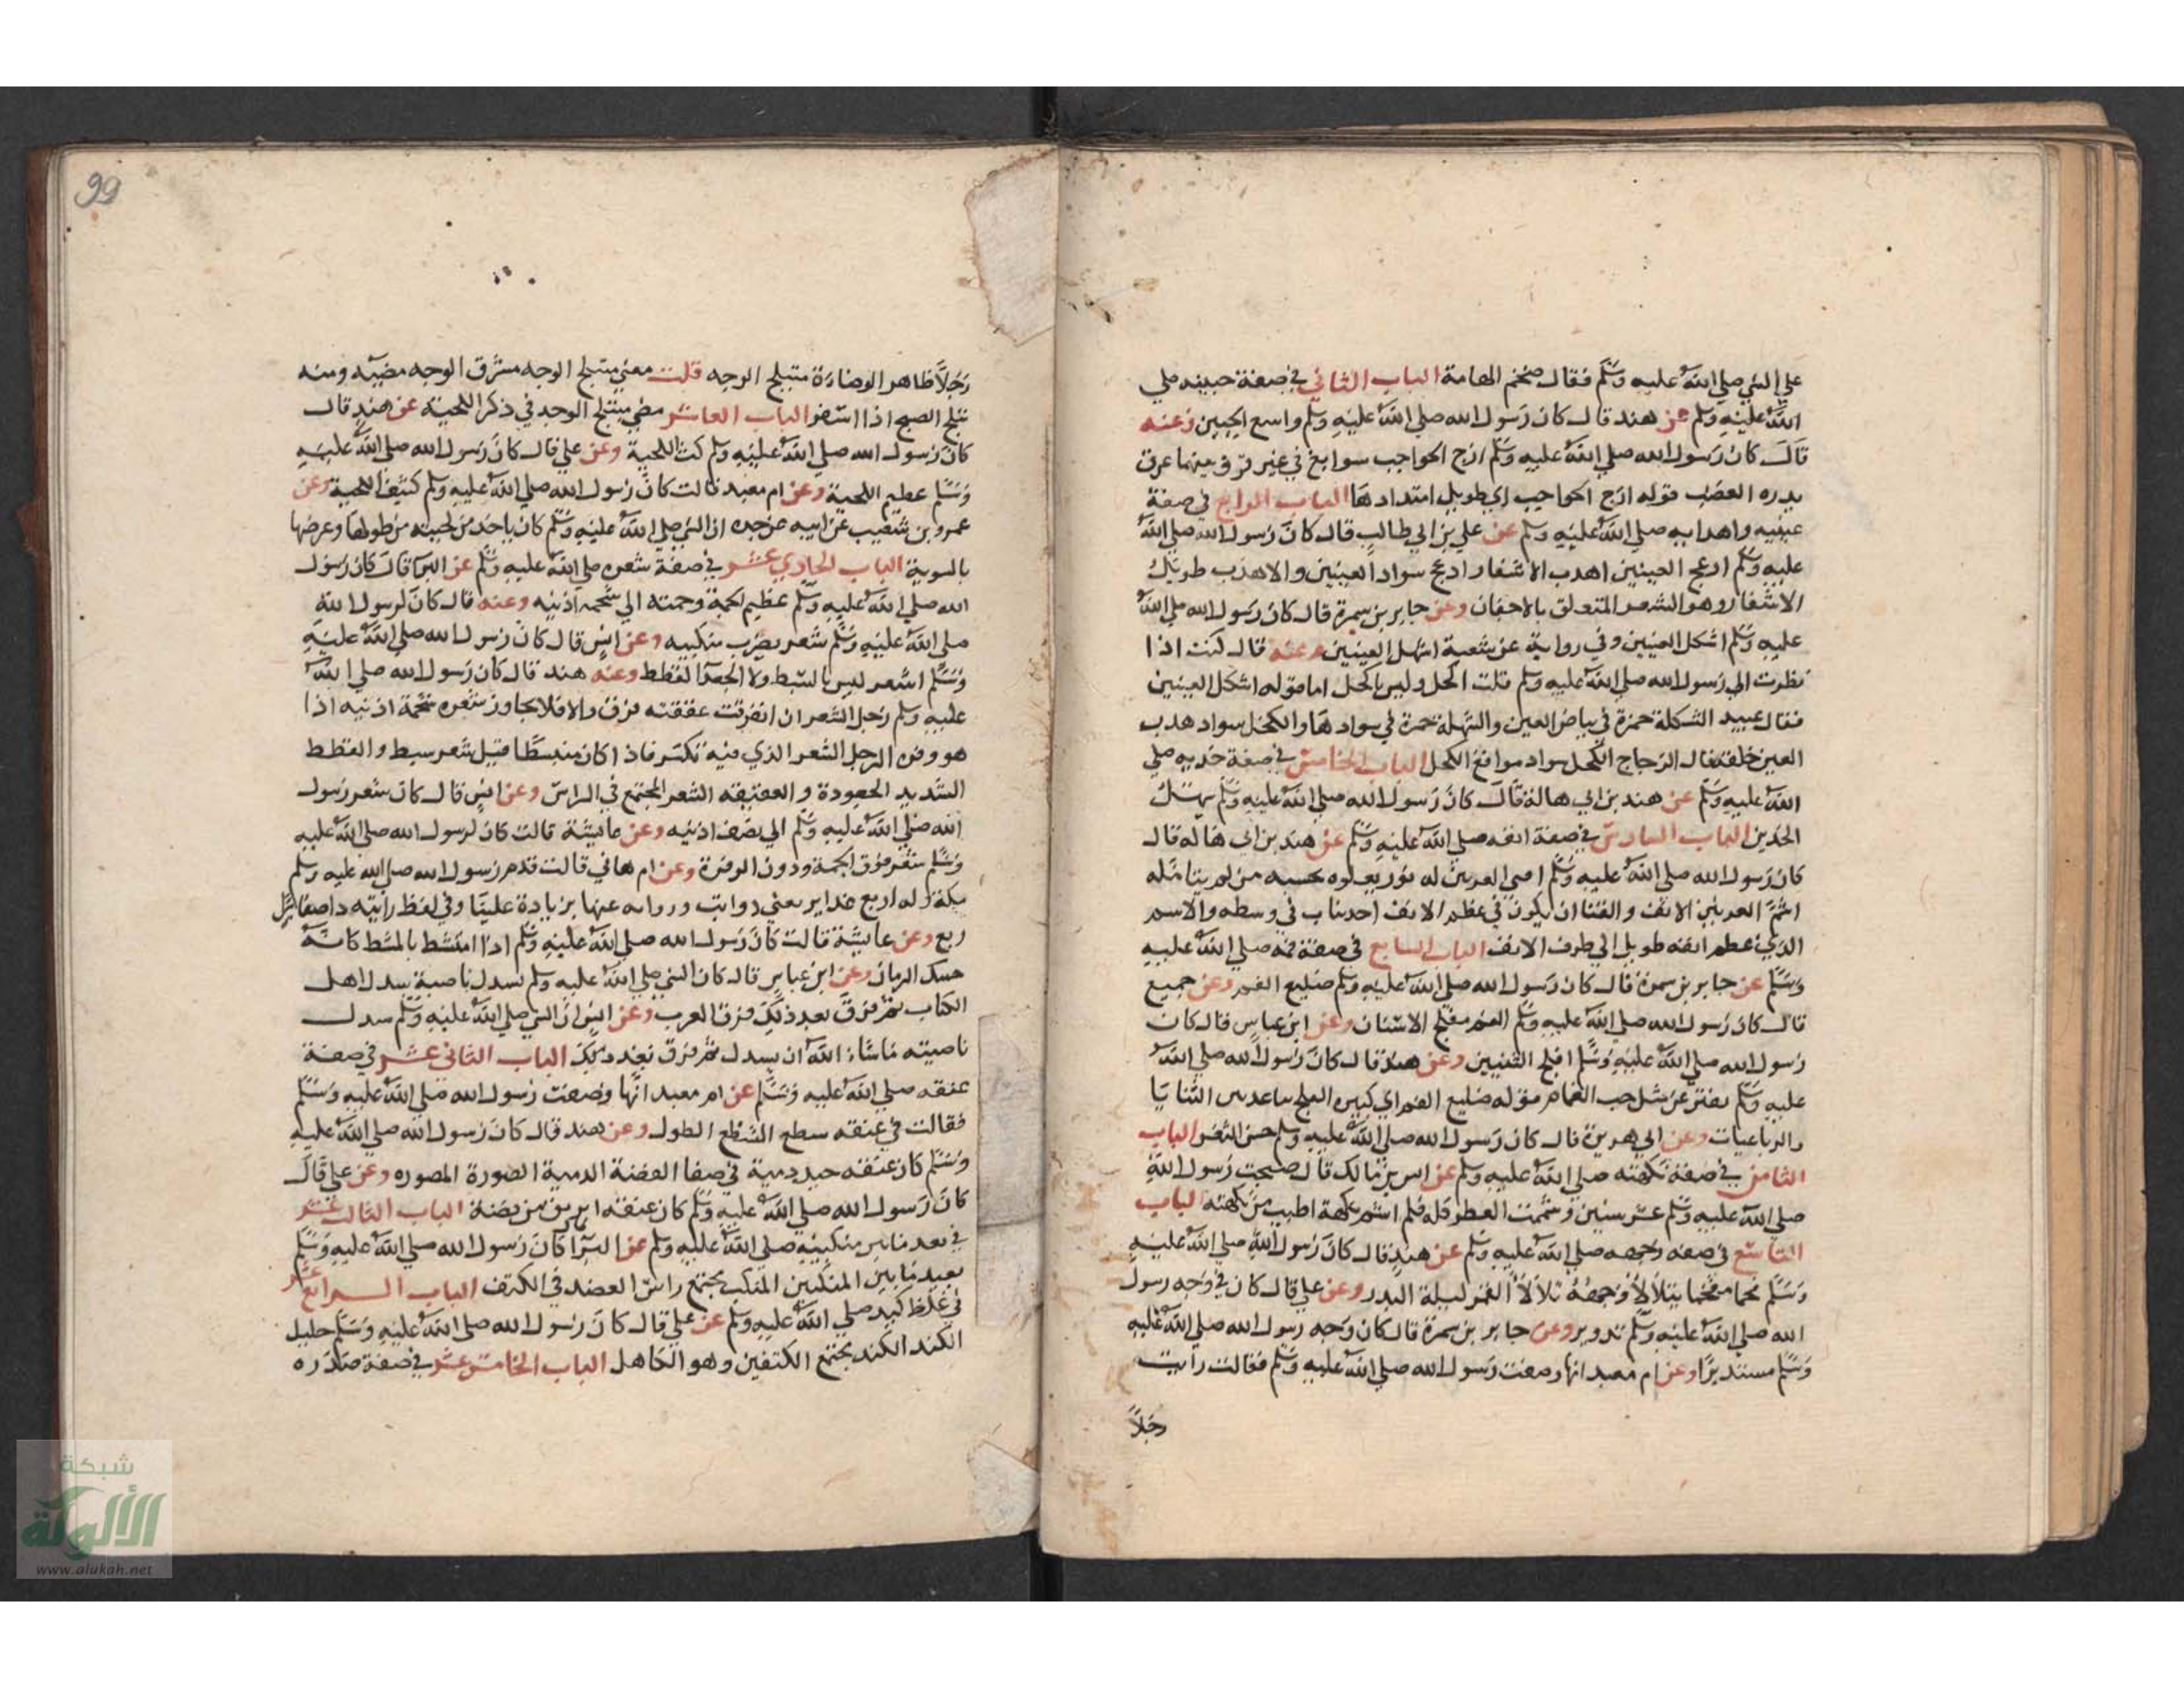 علي النبي صلي الله عليه وسلم فقال ضخم الهامة الباب الثاني في صفة جبينه صلي
الله عليه وسلم عن هند قال كان رسول الله صلي الله عليه وسلم واسع الجبين وعنه
قال كان رسول الله صلي الله عليه وسلم ازج الحواجب سوابغ في غير قرن بينهما عرق
يدره الغضب قوله ازج الحواجب اي طويل امتدادها الباب الرابع في صفة
عينيه واهدابه صلي الله عليه وسلم عن علي بن ابي طالب قال كان رسول الله صلي الله
عليه وسلم ادعج العينين اهدب الاشفار ادعج سواد العينين والاهدب طويل
الاشفار وهو الشعر المتعلق بالاجفان وعن جابر بن سمرة قال كان رسول الله صلي الله
عليه وسلم اشكل العينين وفي رواية عن شعبة اشهل العينين وعنه قال كنت اذا
نظرت الي رسول الله صلي الله عليه وسلم قلت اكحل وليس باكحل اما قوله اشكل العينين
فقال عبيد الشكلة حمرة في بياض العين والشهلة حمرة في سوادها والكحل سواد هدب
العين خلقة فقال الزجاج الكحل سواد مواقع الكحل الباب الخامس في صفة خديه صلي
الله عليه وسلم عن هند بن ابي هالة قال كان رسول الله صلي الله عليه وسلم سهل
الخدين الباب السادس في صفة انفه صلي الله عليه وسلم عن هند بن ابي هاله قال
كان رسول الله صلي الله عليه وسلم اقني العرنين له نور يعلوه يحسبه من لم يتامله
اشم العرنين الانف والقنا ان يكون في عظم الانف احديداب في وسطه والاشم
الذي عظم انفه طويل الي طرف الانف الباب السابع في صفة فمه صلي الله عليه
وسلم عن جابر بن سمرة قال كان رسول الله صلي الله عليه وسلم ضليع الفم وعن جميع
قال كان رسول الله صلي الله عليه وسلم الفم مفلج الاسنان وعن ابن عباس قال كان
رسول الله صلي الله عليه وسلم افلج الثنيين وعن هند قال كان رسول الله صلي الله
عليه وسلم يفتر عن مثل حب الغمام قوله ضليع الفم اي كبير الفلج تباعد بين الثنايا
والرباعيات وعن ابي هريرة قال كان رسول الله صلي الله عليه وسلم حسن الثغر الباب
الثامن في صفة نكهته صلي الله عليه وسلم عن انس بن مالك قال صحبت رسول الله
صلي الله عليه وسلم عشر سنين وشممت العطر كله فلم اشم نكهة اطيب من نكهته الباب
التاسع في صفة وجهه صلي الله عليه وسلم عن هند قال كان رسول الله صلي الله عليه
وسلم فخما مفخما يتلألأ وجهه تلألأ القمر ليلة البدر وعن علي قال كان في وجه رسول
الله صلي الله عليه وسلم تدوير وعن جابر بن سمرة قال كان وجه رسول الله صلي الله عليه
وسلم مستديرا وعن ام معبد انها وصفت رسول الله صلي الله عليه وسلم فقالت رايت
رجلاً
99
رجلاً ظاهر الوضاءة متبلج الوجه قلت معني متبلج الوجه مشرق الوجه مضيه ومنه
تبلج الصبح اذا اسفر الباب العاشر في ذكر اللحية عن هند قال
كان رسول الله صلي الله عليه وسلم كث اللحية وعن علي قال كان رسول الله صلي الله عليه
وسلم عظيم اللحية وعن ام معبد قالت كان رسول الله صلي الله عليه وسلم كثيف اللحية وعن
عمرو بن شعيب عن ابيه عن جده ان النبي صلي الله عليه وسلم كان ياخذ من لحيته من طولها وعرضها
بالسوية الباب الحادي عشر في صفة شعره صلي الله عليه وسلم عن البرا قال كان رسول
الله صلي الله عليه وسلم عظيم الجمة وجمته الي شحمه اذنيه وعنه قال كان لرسول الله
صلي الله عليه وسلم شعر يضرب منكبيه وعن انس قال كان رسول الله صلي الله عليه
وسلم اشعر ليس بالسبط ولا الجعد القطط وعنه هند قال كان رسول الله صلي الله
عليه وسلم رجل الشعر ان انفرقت عقيقته فرق والا فلا يجاوز شعره شحمة اذنيه اذا
هو وفره الرجل الشعر الذي فيه تكسر فاذا كان منبسطا قيل شعر سبط والقطط
الشديد الجعودة والعقيقه الشعر المجتمع في الراس وعن انس قال كان شعر رسول
الله صلي الله عليه وسلم الي نصف اذنيه وعن عايشة قالت كان لرسول الله صلي الله عليه
وسلم شعر فوق الجمة ودون الوفرة وعن ام هاني قالت قدم رسول الله صلي الله عليه وسلم
مكة وله اربع غداير يعني ذوايب ورواه عنها بزيادة علينا وفي لفظ رايته
ربع وعن عايشة قالت كان رسول الله صلي الله عليه وسلم اذا امتشط بالمشط كانه
حبك الرمال وعن ابن عباس قال كان النبي صلي الله عليه وسلم يسدل ناصيته سدل اهل
الكتاب ثم فرق بعد ذلك فرق العرب وعن انس ان النبي صلي الله عليه وسلم سدل
ناصيته ماشاء الله ان يسدل ثم فرق بعد ذلك الباب الثاني عشر في صفة
عنقه صلي الله عليه وسلم عن ام معبد انها وصفت رسول الله صلي الله عليه وسلم
فقالت في عنقه سطع السطع الطول وعن هند قال كان رسول الله صلي الله عليه
وسلم كان عنقه جيد دمية في صفا الفضة الدمية الصورة المصوره وعن علي قال
كان رسول الله صلي الله عليه وسلم كان عنقه ابريق من فضة الباب الثالث عشر
في بعد مابين منكبيه صلي الله عليه وسلم عن البرا كان رسول الله صلي الله عليه وسلم
بعيد مابين المنكبين المنكب مجتمع راس العضد في الكتف الباب الرابع عشر
في غلظ كتده صلي الله عليه وسلم عن علي قال كان رسول الله صلي الله عليه وسلم جليل
الكتد الكتد مجتمع الكتفين وهو الكاهل الباب الخامس عشر في صفة صدره
شبكة
الألوكة
www.alukah.net